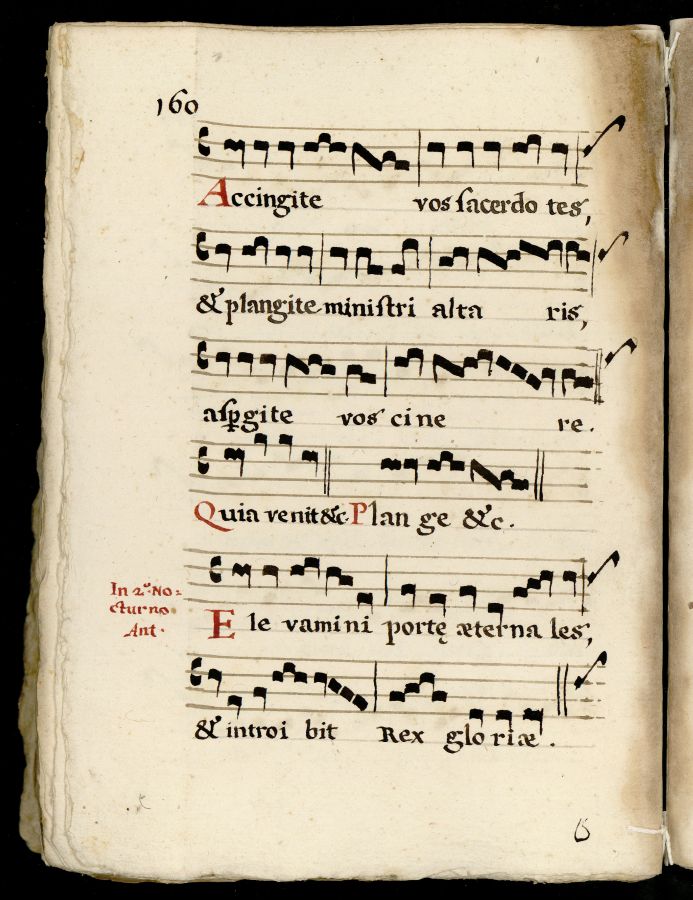 160
Accingite vos ſacerdo tes,
& plangite miniſtri alta ris,
aſꝑgite vos cine re.
Quia venit &c. Plan ge &c.
In 2.º No=
cturno
Ant.
E le vamini portę æterna les,
& introi bit Rex gloriæ.